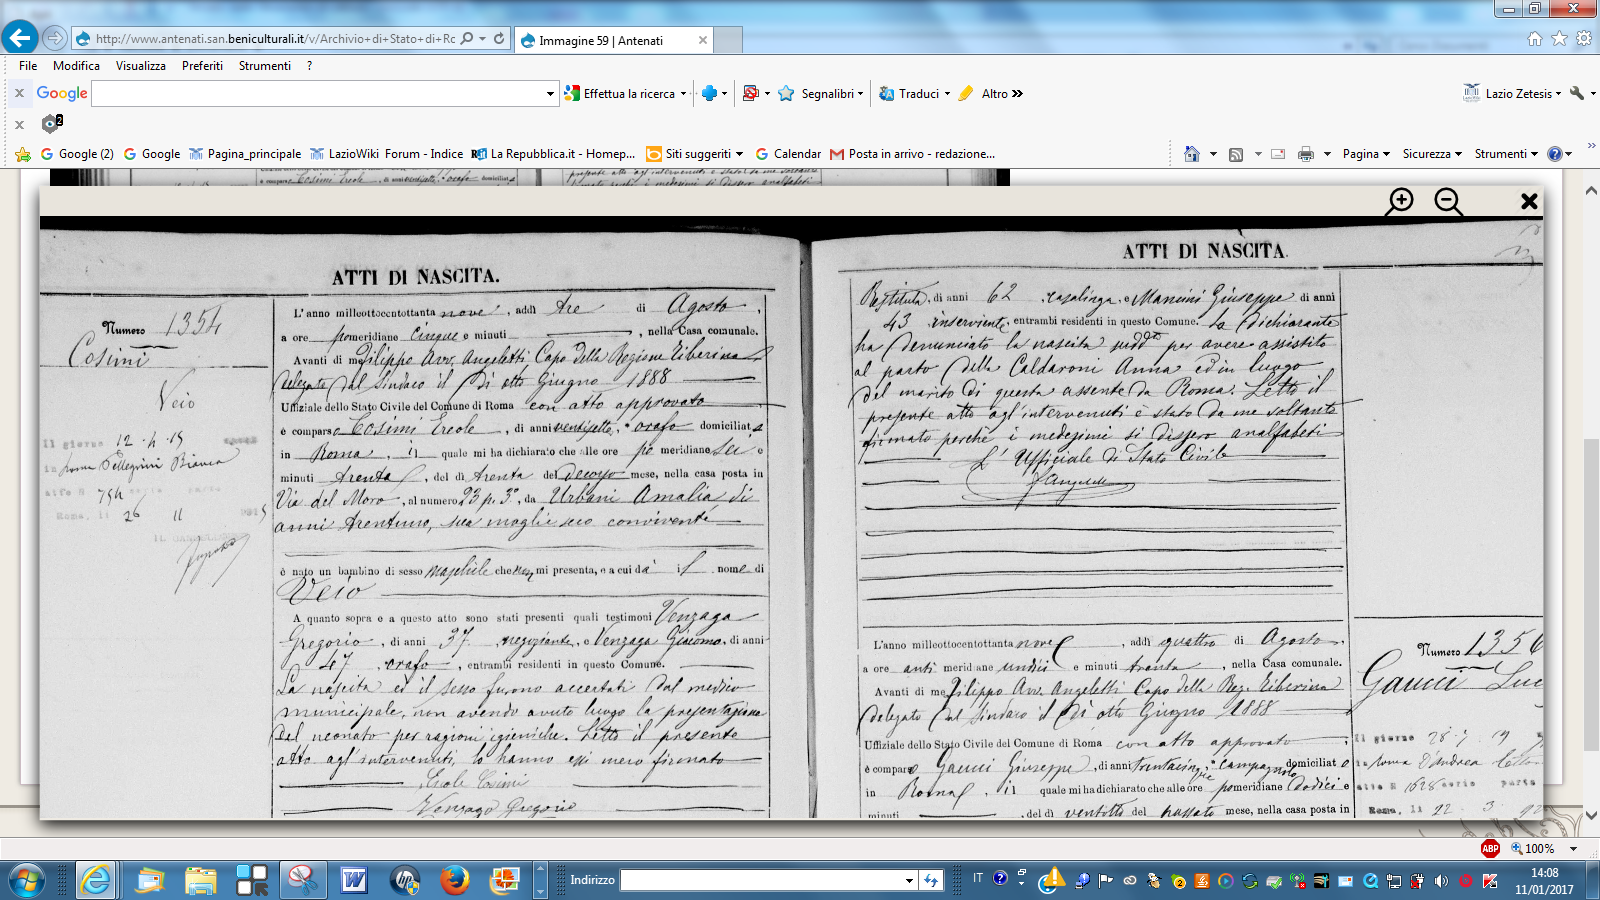 http://www.antenati.san.beniculturali.it/v/Archivio+di+Stato+di+Rc
Immagine 59 | Antenati
File Modifica Visualizza Preferiti Strumenti ?
x Google Effettua la ricerca Segnalibri Traduci Altro »
Lazio Zetesis
x 2
Google (2) Google Pagina_principale LazioWiki Forum - Indice La Repubblica.it - Homep... Siti suggeriti Calendar Posta in arrivo - redazione...
Pagina Sicurezza Strumenti
ATTI DI NASCITA.
Numero 1354
Cosimi
Veio
Il giorno 12 · 4 · 15
in Roma Pellegrini Bianca
atto N 794 serie parte
Roma, li 26 11
L'anno milleottocentottanta nove, addì tre di Agosto,
a ore pomeridiane cinque e minuti , nella Casa comunale.
Avanti di me Filippo Avv. Angeletti Capo della Regione Tiberina
delegato dal Sindaco il dì otto Giugno 1888
Uffiziale dello Stato Civile del Comune di Roma con atto approvato
è comparso Cosimi Ercole, di anni ventisette, orafo domiciliato
in Roma, il quale mi ha dichiarato che alle ore po meridiane sei e
minuti trenta, del dì trenta del decorso mese, nella casa posta in
Via del Moro, al numero 23 p. 3°, da Urbani Amalia di
anni trentuno, sua moglie seco convivente
è nato un bambino di sesso maschile che non mi presenta, e a cui dà il nome di
Veio
A quanto sopra e a questo atto sono stati presenti quali testimoni Venzaga
Gregorio, di anni 37, negoziante, e Venzaga Giacomo, di anni
47, orafo, entrambi residenti in questo Comune.
La nascita ed il sesso furono accertati dal medico
municipale, non avendo avuto luogo la presentazione
del neonato per ragioni igieniche. Letto il presente
atto agl'intervenuti, lo hanno essi meco firmato
Ercole Cosimi
Venzaga Gregorio
ATTI DI NASCITA.
Restituta, di anni 62, casalinga, e Mancini Giuseppe di anni
43 inserviente, entrambi residenti in questo Comune. La dichiarante
ha denunciato la nascita sudd.ta per avere assistito
al parto della Caldaroni Anna ed in luogo
del marito di questa assente da Roma. Letto il
presente atto agl'intervenuti è stato da me soltanto
firmato perchè i medesimi si dissero analfabeti
L'Uffiziale di Stato Civile
F. Angeletti
Numero 1356
Gaucci Luc
Il giorno 28 · 7 · 19
in Roma D'Andrea
atto N 1628 serie parte
Roma, li 22 · 3 · 92
L'anno milleottocentottanta nove, addì quattro di Agosto,
a ore anti meridiane undici e minuti trenta, nella Casa comunale.
Avanti di me Filippo Avv. Angeletti Capo della Reg. Tiberina
delegato dal Sindaco il dì otto Giugno 1888
Uffiziale dello Stato Civile del Comune di Roma con atto approvato
è comparso Gaucci Giuseppe, di anni trentacinque, campagnolo domiciliato
in Roma, il quale mi ha dichiarato che alle ore pomeridiane dodici e
minuti , del dì ventotto del passato mese, nella casa posta in
ABP 100%
Indirizzo
IT
14:08
11/01/2017